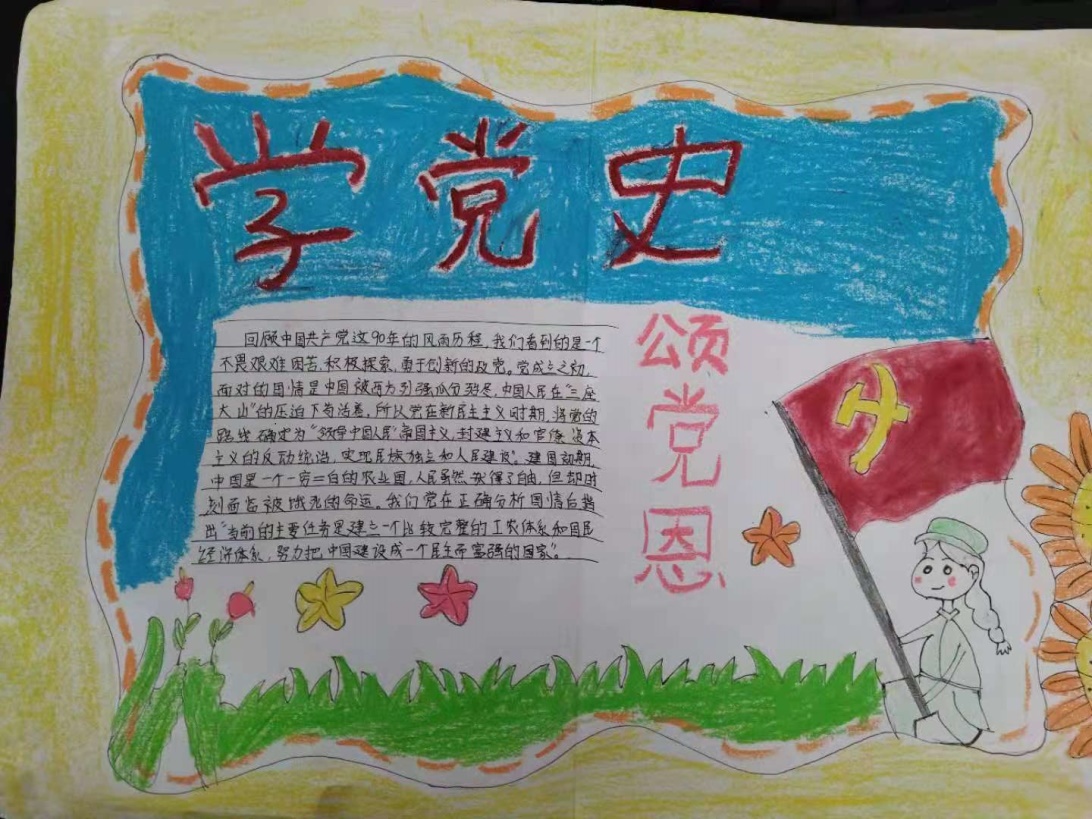 学党史
回顾中国共产党这90年的风雨历程,我们看到的是一个
不畏艰难困苦,积极探索,勇于创新的政党。党成立之初,
面对的国情是中国被西方列强瓜分殆尽,中国人民在“三座
大山”的压迫下苟活着,所以党在新民主主义时期,将党的
路线确定为“领导中国人民 帝国主义,封建主义和官僚资本
主义的反动统治,实现民族独立和人民建设”。建国初期,
中国是一个一穷二白的农业国,人民虽然获得了自由,但却时
刻面临被饿死的命运。我们党在正确分析国情后指
出“当前的主要任务是建立一个比较完整的工农体系和国民
经济体系,努力把中国建设成一个民主而富强的国家”。
颂党恩